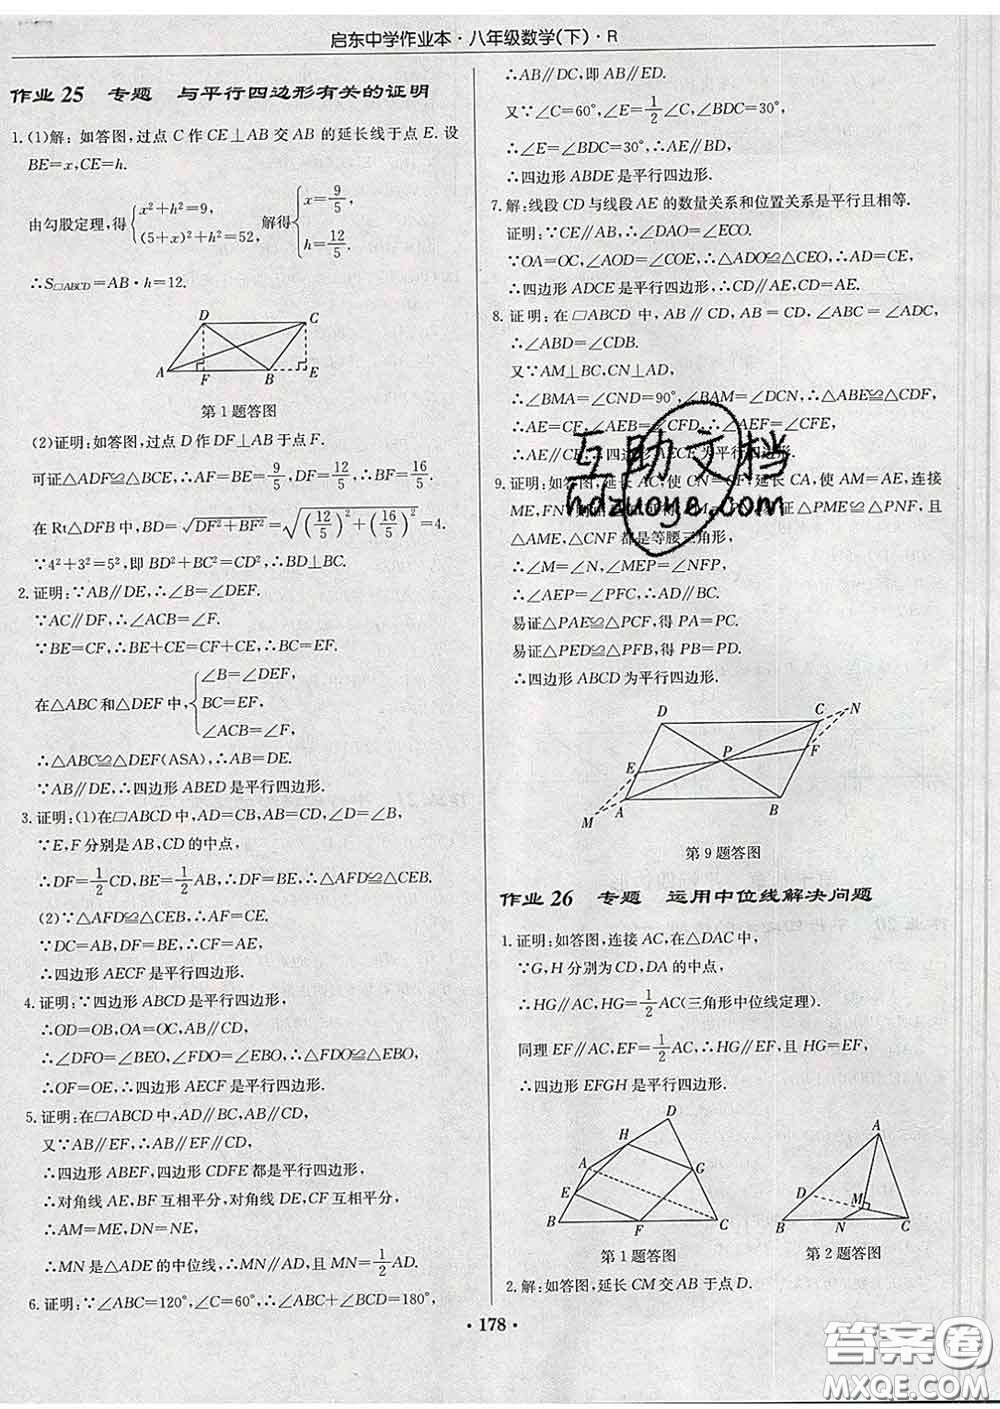 启东中学作业本·八年级数学(下)·R
作业25 专题 与平行四边形有关的证明
1.(1)解：如答图,过点 C 作 CE⊥AB 交 AB 的延长线于点 E.设
BE=x,CE=h.
由勾股定理,得{x²+h²=9, (5+x)²+h²=52, 解得{x=9/5, h=12/5.
∴S□ABCD=AB·h=12.
D C
A F B E
第1题答图
(2)证明:如答图,过点 D 作 DF⊥AB 于点 F.
可证△ADF≌△BCE,∴AF=BE=9/5,DF=12/5,∴BF=16/5.
在 Rt△DFB 中,BD=√(DF²+BF²)=√((12/5)²+(16/5)²)=4.
∵4²+3²=5²,即 BD²+BC²=CD²,∴BD⊥BC.
2.证明:∵AB∥DE,∴∠B=∠DEF.
∵AC∥DF,∴∠ACB=∠F.
∵BE=CF,∴BE+CE=CF+CE,∴BC=EF.
在△ABC和△DEF中,{∠B=∠DEF, BC=EF, ∠ACB=∠F,
∴△ABC≌△DEF(ASA),∴AB=DE.
∵AB∥DE,∴四边形 ABED 是平行四边形.
3.证明:(1)在□ABCD 中,AD=CB,AB=CD,∠D=∠B.
∵E,F 分别是 AB,CD 的中点,
∴DF=1/2CD,BE=1/2AB,∴DF=BE,∴△AFD≌△CEB.
(2)∵△AFD≌△CEB,∴AF=CE.
∵DC=AB,DF=BE,∴CF=AE,
∴四边形 AECF 是平行四边形.
4.证明:∵四边形 ABCD 是平行四边形,
∴OD=OB,OA=OC,AB∥CD,
∴∠DFO=∠BEO,∠FDO=∠EBO,∴△FDO≌△EBO,
∴OF=OE,∴四边形 AECF 是平行四边形.
5.证明:在□ABCD 中,AD∥BC,AB∥CD,
又∵AB∥EF,∴AB∥EF∥CD,
∴四边形 ABEF,四边形 CDFE 都是平行四边形,
∴对角线 AE,BF 互相平分,对角线 DE,CF 互相平分,
∴AM=ME,DN=NE,
∴MN 是△ADE 的中位线,∴MN∥AD,且 MN=1/2AD.
6.证明:∵∠ABC=120°,∠C=60°,∴∠ABC+∠BCD=180°,
∴AB∥DC,即 AB∥ED.
又∵∠C=60°,∠E=1/2∠C,∠BDC=30°,
∴∠E=∠BDC=30°,∴AE∥BD.
∴四边形 ABDE 是平行四边形.
7.解:线段 CD 与线段 AE 的数量关系和位置关系是平行且相等.
证明:∵CE∥AB,∴∠DAO=∠ECO.
∵OA=OC,∠AOD=∠COE,∴△ADO≌△CEO,∴AD=CE,
∴四边形 ADCE 是平行四边形,∴CD∥AE,CD=AE.
8.证明:在□ABCD 中,AB∥CD,AB=CD,∠ABC=∠ADC,
∴∠ABD=∠CDB.
又∵AM⊥BC,CN⊥AD,
∴∠BMA=∠CND=90°,∠BAM=∠DCN,∴△ABE≌△CDF,
∴AE=CF,∠AEB=∠CFD,∴∠AEF=∠CFE,
∴AE∥CF,∴四边形 AECF 为平行四边形.
9.证明:如答图,延长 AC,使 CN=CF,延长 CA,使 AM=AE,连接
ME,FN, 证△PME≌△PNF,且
△AME,△CNF 都是等腰三角形,
∴∠M=∠N,∠MEP=∠NFP,
∴∠AEP=∠PFC,∴AD∥BC.
易证△PAE≌△PCF,得 PA=PC.
易证△PED≌△PFB,得 PB=PD.
∴四边形 ABCD 为平行四边形.
D C N
P F
E
M A B
第9题答图
作业26 专题 运用中位线解决问题
1.证明:如答图,连接 AC,在△DAC 中,
∵G,H 分别为 CD,DA 的中点,
∴HG∥AC,HG=1/2AC(三角形中位线定理).
同理 EF∥AC,EF=1/2AC,∴HG∥EF,且 HG=EF,
∴四边形 EFGH 是平行四边形.
D
H
A G
E
B F C
第1题答图
A
D M
B N C
第2题答图
2.解:如答图,延长 CM 交 AB 于点 D.
·178·
互助文档
hdzuoye.com
答案圈
MXQE.COM